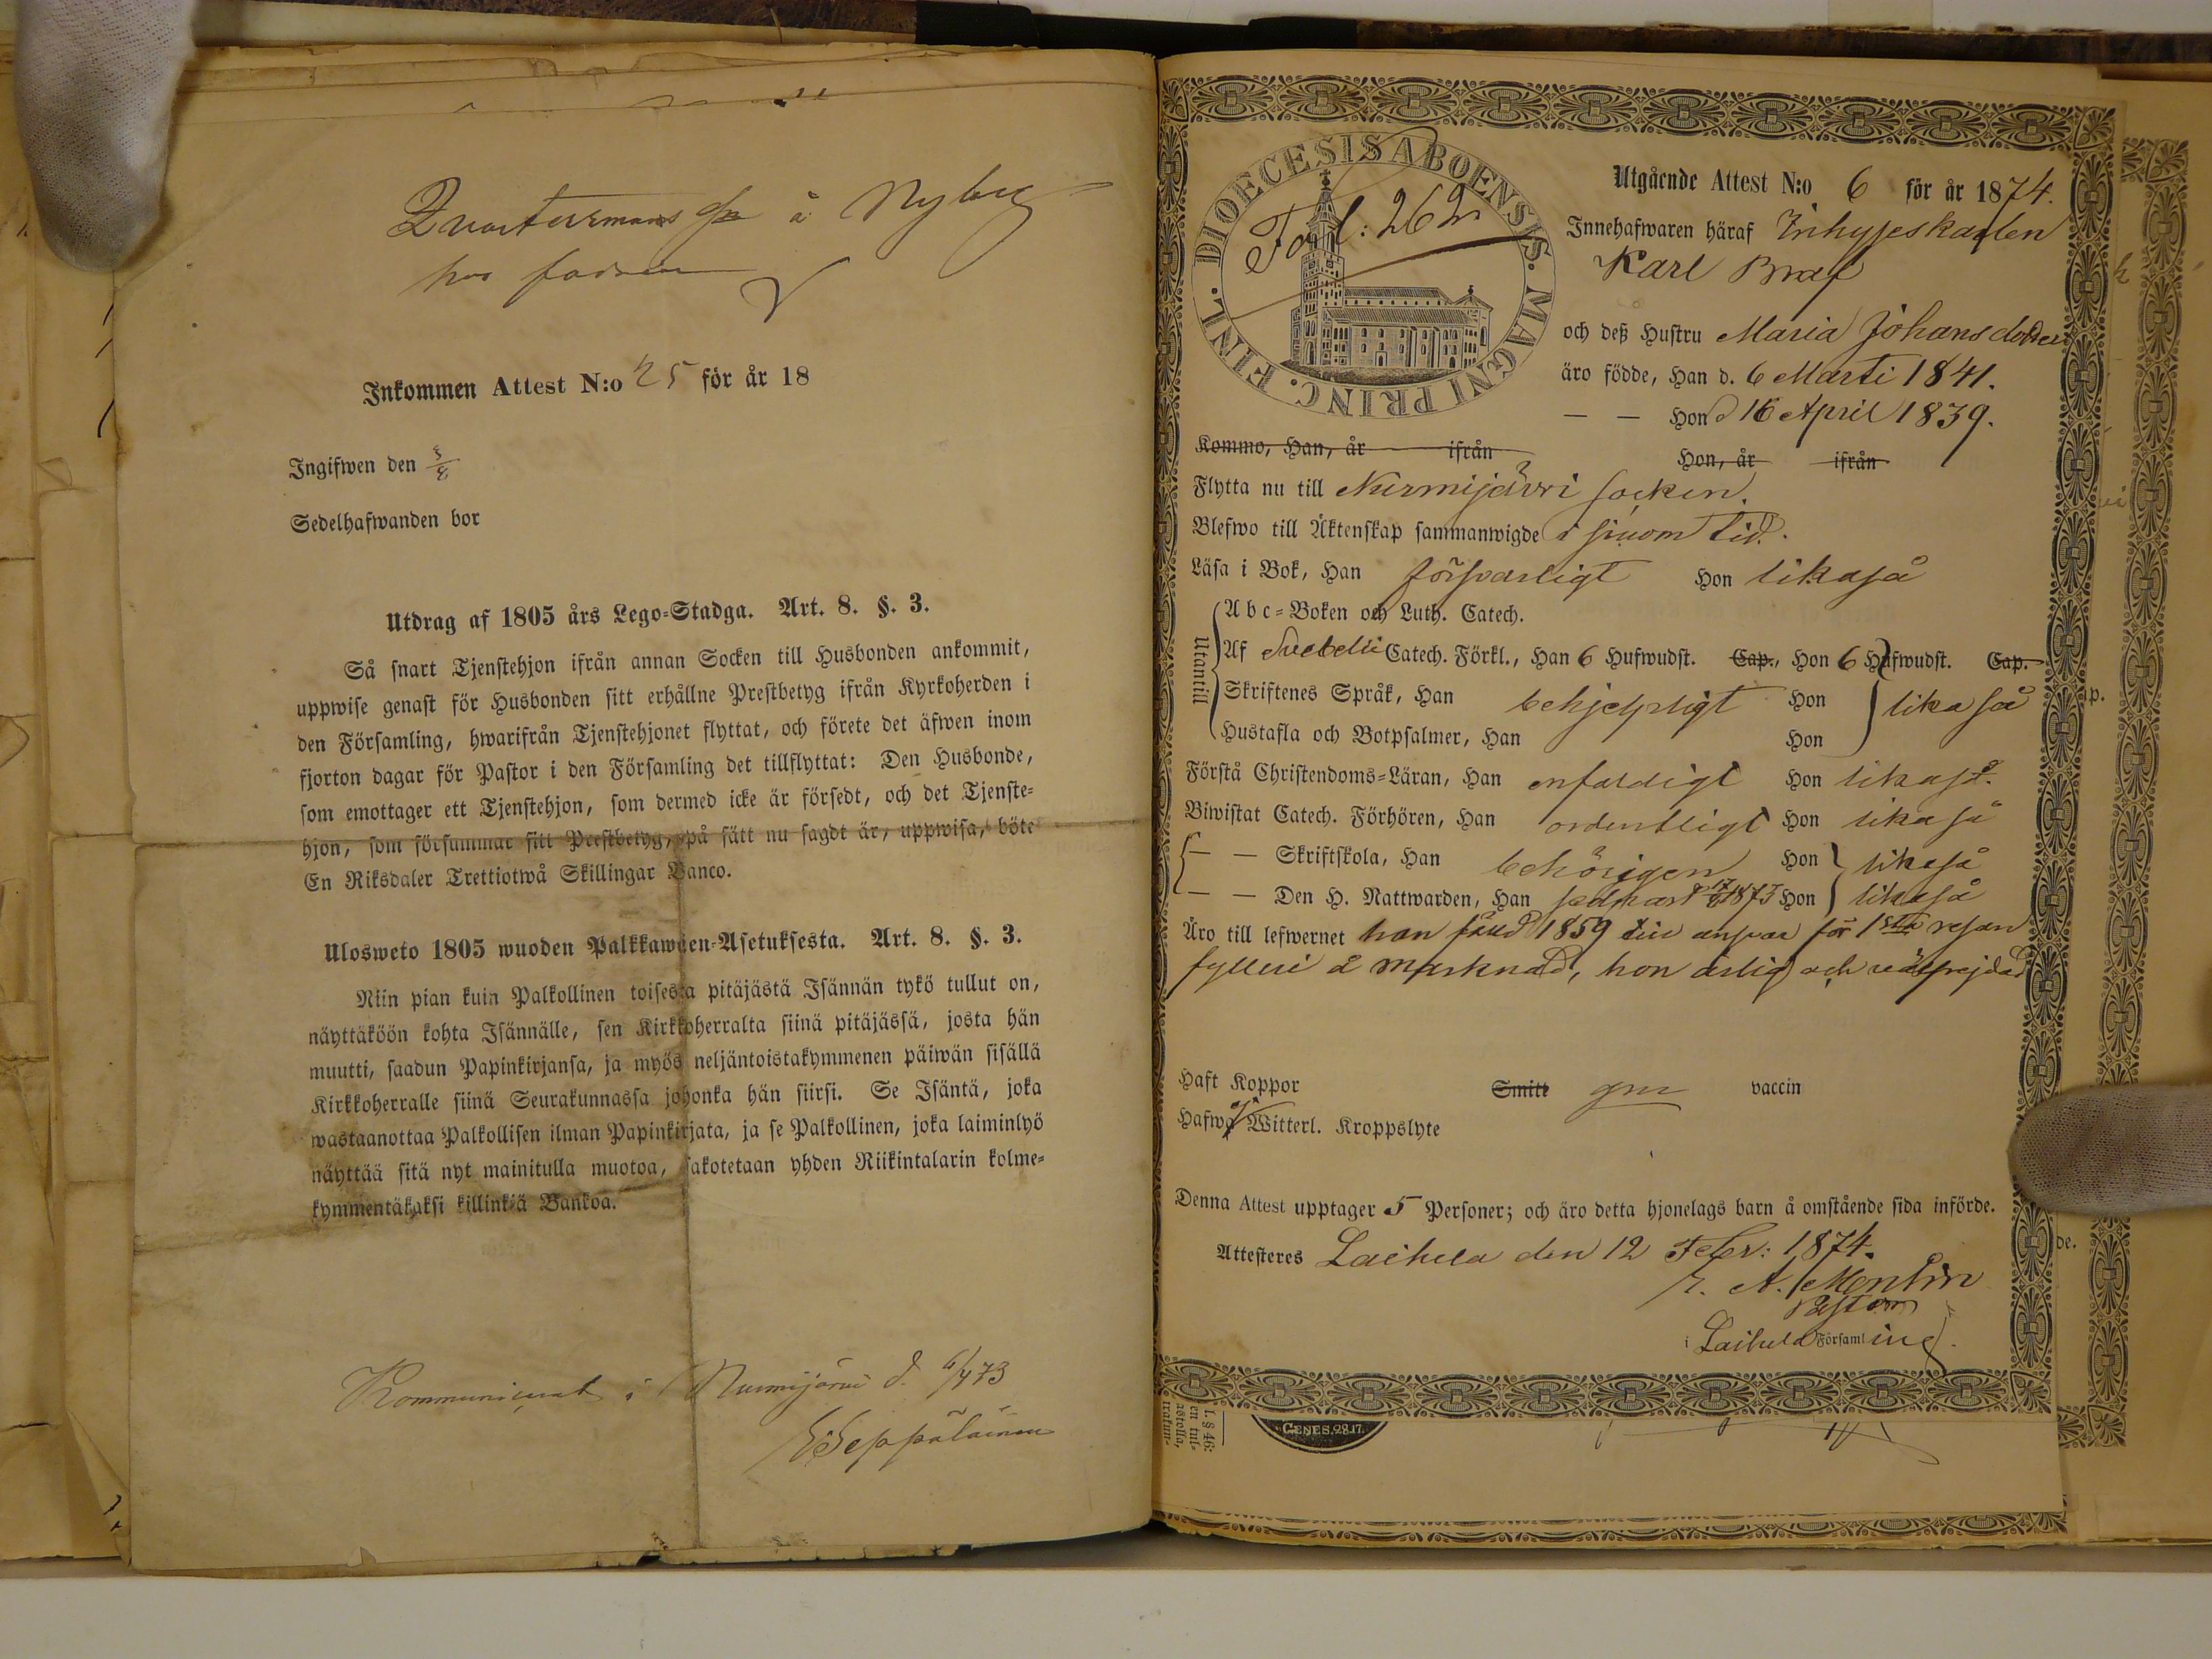 å Nyby
hos fadren
Inkommen Attest N:o 25 för år 18
Ingifwen den
Sedelhafwanden bor
Utdrag af 1805 års Lego-Stadga. Art. 8. §. 3.
Så snart Tjenstehjon ifrån annan Socken till Husbonden ankommit,
uppwise genast för Husbonden sitt erhållne Prestbetyg ifrån Kyrkoherden i
den Församling, hwarifrån Tjenstehjonet flyttat, och förete det äfwen inom
fjorton dagar för Pastor i den Församling det tillflyttat: Den Husbonde,
som emottager ett Tjenstehjon, som dermed icke är försedt, och det Tjenste-
hjon, som försummar sitt Prestbetyg, på sätt nu sagdt är, uppwisa, böte
En Riksdaler Trettiotwå Skillingar Banco.
Ulosweto 1805 wuoden Palkkawäen-Asetuksesta. Art. 8. §. 3.
Niin pian kuin Palkollinen toisesta pitäjästä Isännän tykö tullut on,
näyttäköön kohta Isännälle, sen Kirkkoherralta siinä pitäjässä, josta hän
muutti, saadun Papinkirjansa, ja myös neljäntoistakymmenen päiwän sisällä
Kirkkoherralle siinä Seurakunnassa johonka hän siirsi. Se Isäntä, joka
wastaanottaa Palkollisen ilman Papinkirjata, ja se Palkollinen, joka laiminlyö
näyttää sitä nyt mainitulla muotoa, sakotetaan yhden Riikintalarin kolme-
kymmentäkaksi killinkiä Bankoa.
Kommunicerat i Nurmijärvi d. 6/4 73
Seppäläinen
DIOECESIS ABOENSIS. MAGNI PRINC. FINL.
Fol: 262
Utgående Attest N:o 6 för år 1874.
Innehafwaren häraf Inhyseskarlen
Karl Braf
och deß Hustru Maria Johansdotter
äro födde, Han d. 6 Marti 1841.
— — Hon d 16 April 1839.
Kommo, Han, år ifrån Hon, år ifrån
Flytta nu till Nurmijärvi socken.
Blefwo till Äktenskap sammanwigde i sinom tid.
Läsa i Bok, Han försvarligt Hon likaså
Utantill
Abc-Boken och Luth. Catech.
Af Svebelii Catech. Förkl., Han 6 Hufwudst. Cap., Hon 6 Hufwudst. Cap.
Skriftenes Språk, Han behjelpligt Hon likaså
Hustafla och Botpsalmer, Han Hon
Förstå Christendoms-Läran, Han enfaldigt Hon likaså.
Biwistat Catech. Förhören, Han ordentligt Hon likaså
— — Skriftskola, Han behörigen Hon likaså
— — Den H. Nattwarden, Han sednast 1873 Hon likaså
Äro till lefwernet han fäld 1859 till ansvar för 1sta resan
fylleri å marknad, hon ärlig och välfrejdad
Haft Koppor Smitt gm vaccin
Hafwa ej Witterl. Kroppslyte
Denna Attest upptager 5 Personer; och äro detta hjonelags barn å omstående sida införde.
Attesteres Laihela den 12 Febr: 1874.
Pastor
i Laihela Församling.
GENES.28.17.